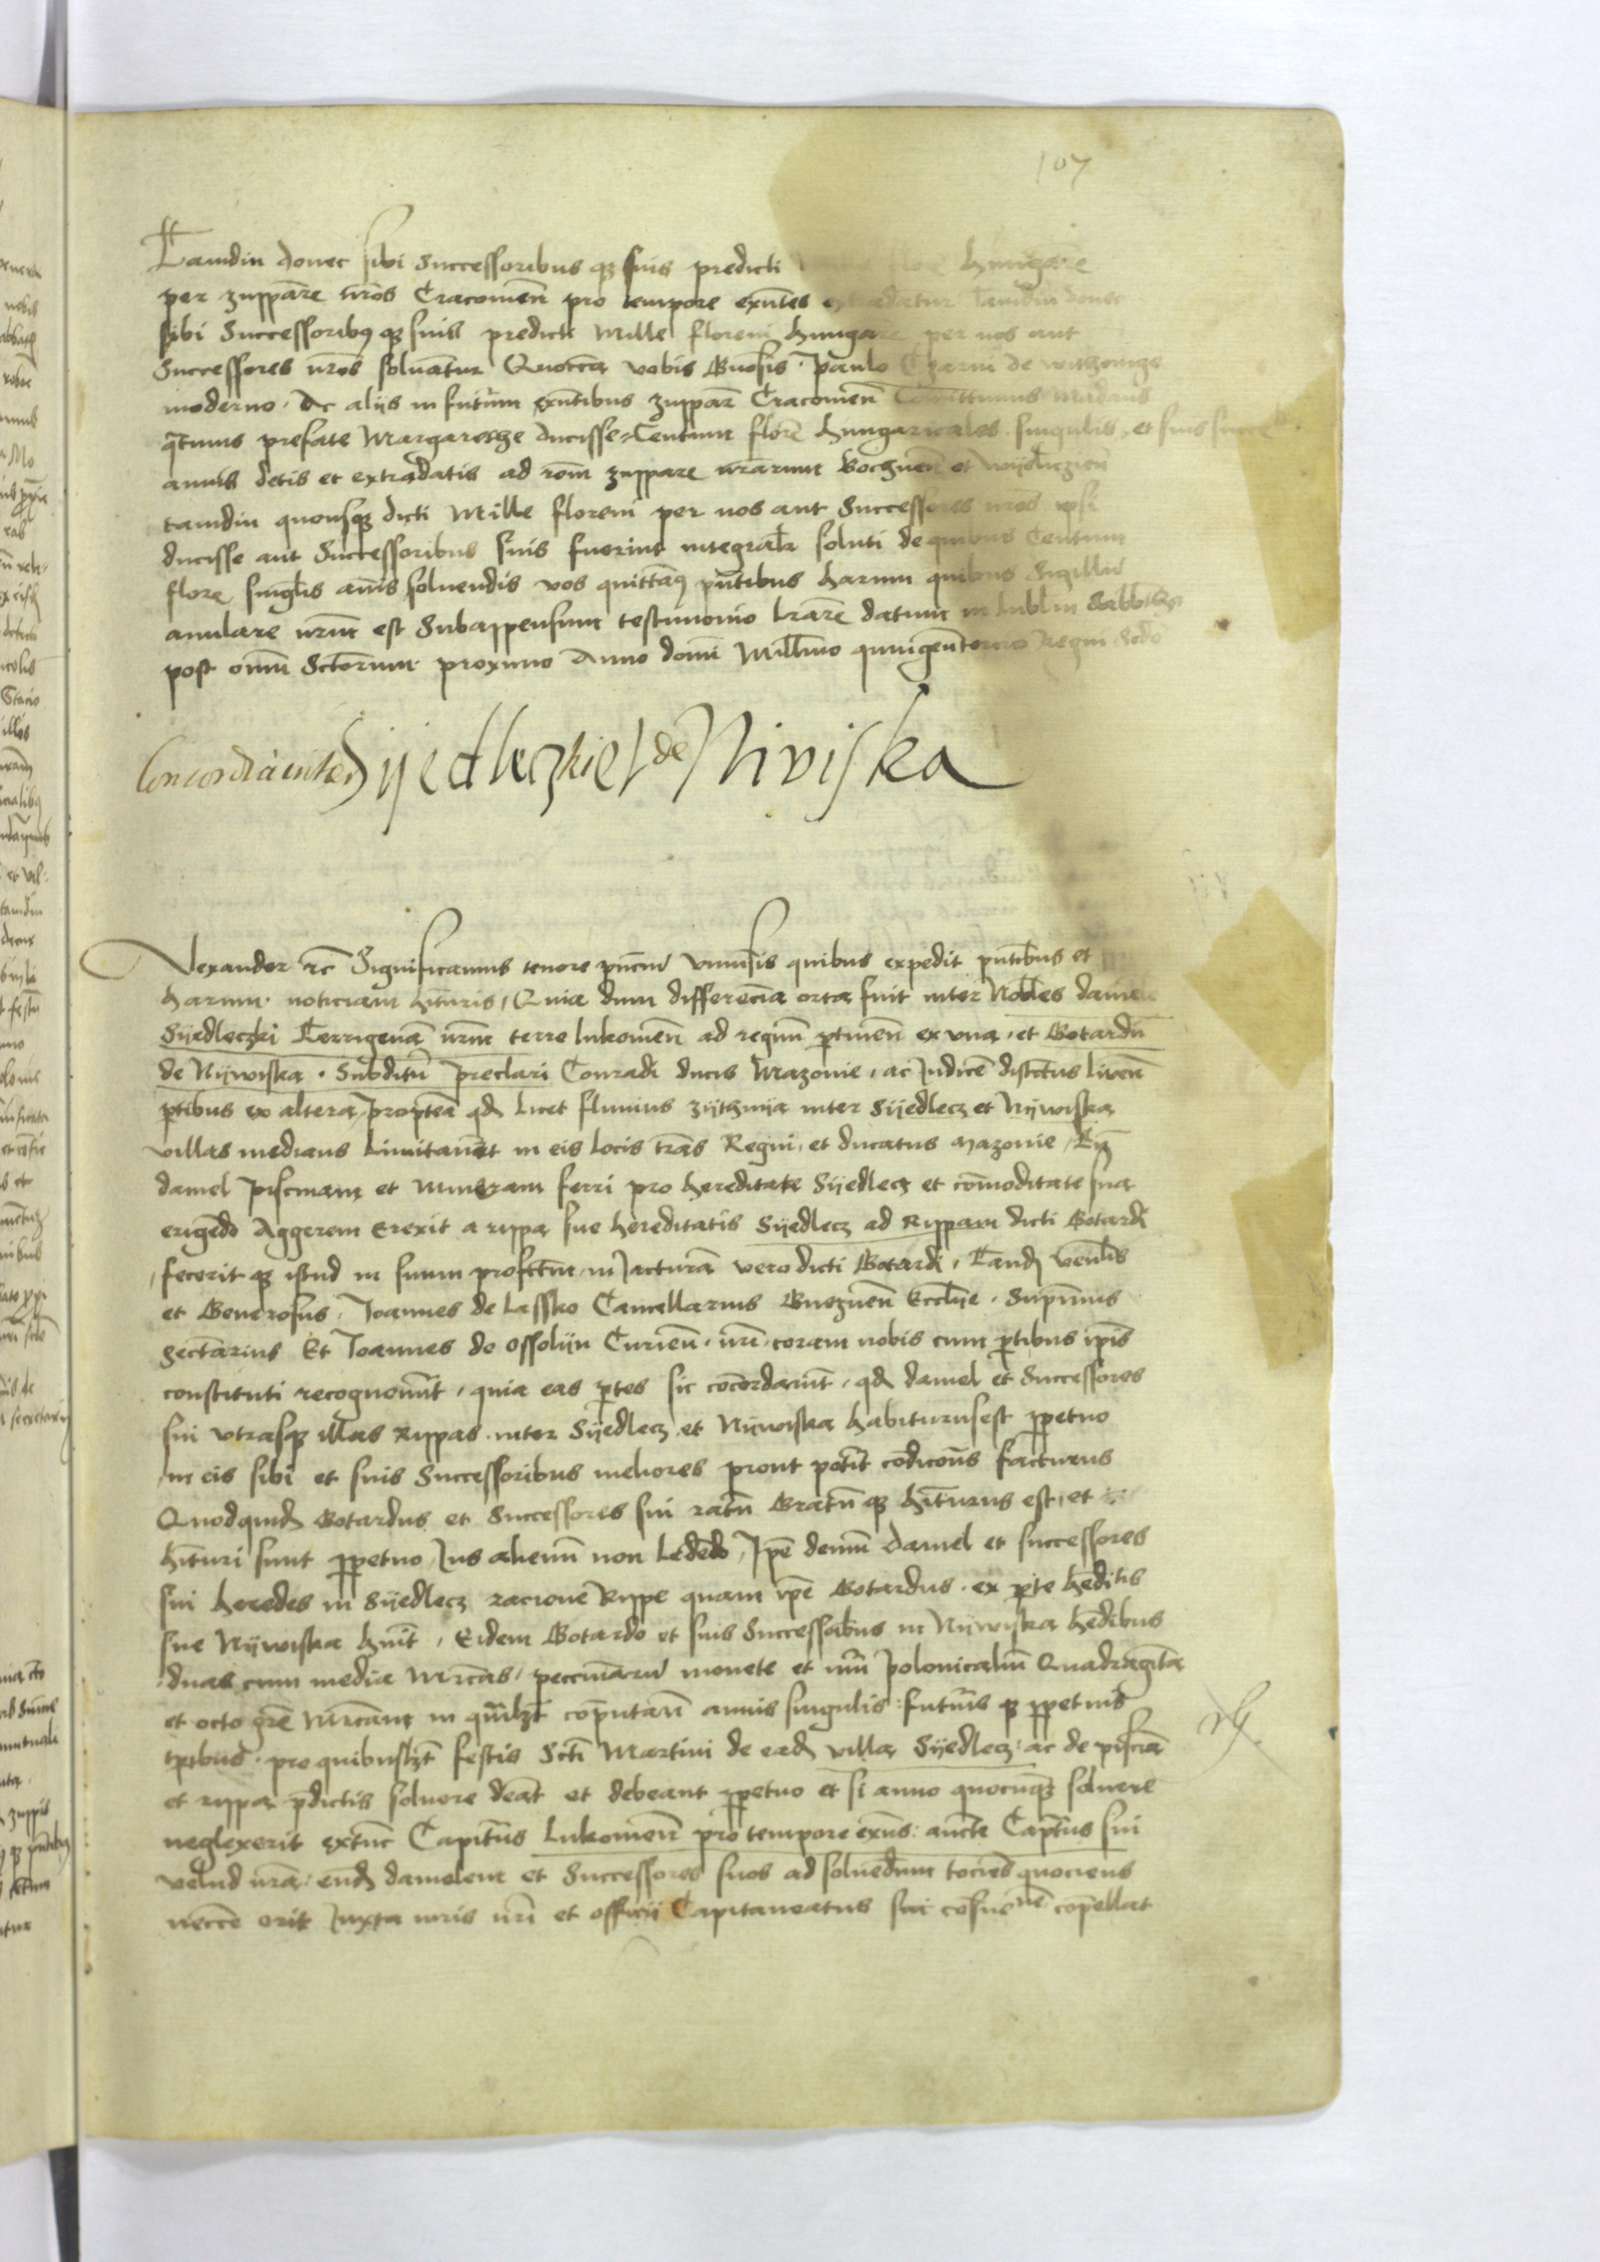 107
Tamdiu donec sibi Successoribus q3 suis predicti Hungare
per zuppare nros Cracouien pro tempore exntes extradatur Tamdiu donec
sibi Successoribus q3 suis predicti Mille floreni hungare per nos aut
Successores nros soluatur Quocca vobis Gnosis Paulo Czarni de
moderno Ac alijs in futurum exntibus zuppar Cracouien Comittimus Madans
qtenus prefate Margarethe ducisse Centum flore hungaricales singulis et suis
annis detis et extradatis ad rom zuppare nrarum Bochnen et
tamdiu quousq3 dicti Mille floreni per nos aut Successores nros ipsi
ducisse aut Successoribus suis fuerint integralr soluti de quibus Centum
flore singlis anis soluendis vos quittam pntibus harum quibus Sigillu
anulare nrum est Subappensum testimonio lrare datum in lublin Sabbato
post omi Sctorum proximo Anno domi Millimo quingentesimo Regni
Concordia inter Sijedleczkie et de Niviska
Alexander rc Significamus tenore pncm vniusis quibus expedit pntibus et
harum noticiam hituris Quia dum differencia orta fuit inter Nobiles daniele
Sijedleczki Terrigena nrm terre lukouien ad regnu ptinen ex vna et Gotardu
de Nijwiska Subditu preclari Conradi ducis Mazouie ac Judice districtus liwen
ptibus ex altera proptea qd licet fluuius inter Sijedlecz et Nijwiska
villas medians Limitauit in eis locis tras Regni et ducatus Mazouie Tn
daniel piscinam et Mineram ferri pro hereditate Sijedlecz et comoditate sua
erigedo Aggerem erexit a rippa sue hereditatis Sijedlecz ad Rippam dicti Gotardi
fecerit q3 istud in suum profctum in Jactura vero dicti Gotardi Tand venlis
et Generosus Joannes de Lassko Cancellarius Gneznen Ecclie Supmus
Sectarius Et Joannes de Ossolijn Curien nri coram nobis cum ptibus ipis
constituti recognouerut quia eas ptes sic cocordarunt qd daniel et Successores
sui vtrasq3 illas Rippas inter Sijedlecz et Nijwiska habiturus est ppetuo
in eis sibi et suis Successoribus meliores prout poterit codicoes facturus
Quodquid Gotardus et Successores sui ratu Gratu q3 hiturus est et
hituri sunt ppetuo Jus alienu non ledendo Ipe demu daniel et successores
sui heredes in Sijedlecz racione Rippe quam ipe Gotardus ex pte heditis
sue Nijwiska huit Eidem Gotardo et suis Successoribus in Nijwiska hedibus
duas cum media Mrcas peccuniaru monete et nri polonicaliu Quadraginta
et octo gre Mrcam in qualzt coputan annis singulis futuris q3 ppetuis
tpibus pro quibuslzt festis Scti Martini de ead villa Sijedlecz ac de piscia
et rippa pdictis soluere deat et debeant ppetuo et si anno quocuq3 soluere
neglexerit extuc Capitus Lukouien pro tempore exns aucte Captus sui
velud nra eund danielem et Successores suos ad soluedum tociens quociens
necce erit Juxta iuris nri et officij Capitaneatus sui cosuene copellat